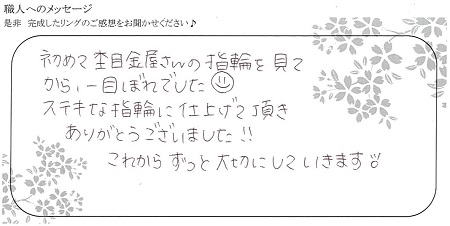 職人へのメッセージ
是非 完成したリングのご感想をお聞かせください♪
初めて杢目金屋さんの指輪を見て
から、一目ぼれでした☺
ステキな指輪に仕上げて頂き
ありがとうございました!!
これからずっと大切にしていきます